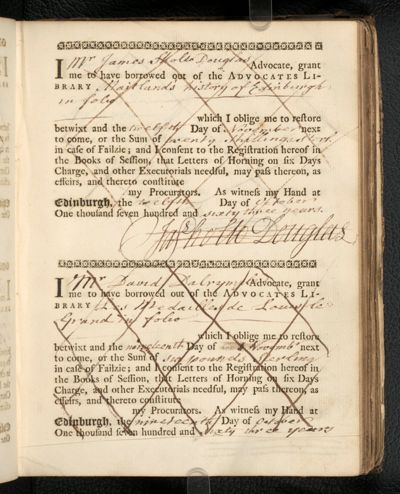 I Mr James Rolls Douglas Advocate, grant
me to have borrowed out of the ADVOCATES LI-
BRARY Maitlands history of Edinburgh
in folio
which I oblige me to restore
betwixt and the twelfth Day of November next
to come, or the Sum of twenty
in case of Failzie; and I consent to the Registration hereof in
the Books of Session, that Letters of Horning on six Days
Charge, and other Executorials needful, may pass thereon, as
effeirs, and thereto constitute
my Procurators. As witness my Hand at
Edinburgh, the twelfth Day of October
One thousand seven hundred and sixty three years.
Douglas
I Mr David Dalrymple Advocate, grant
me to have borrowed out of the ADVOCATES LI-
BRARY Les Medailles de Louis le
Grand in folio
which I oblige me to restore
betwixt and the nineteenth Day of Novemb next
to come, or the Sum of six pounds sterling
in case of Failzie; and I consent to the Registration hereof in
the Books of Session, that Letters of Horning on six Days
Charge, and other Executorials needful, may pass thereon, as
effeirs, and thereto constitute
my Procurators. As witness my Hand at
Edinburgh, the nineteenth Day of October
One thousand seven hundred and sixty three years